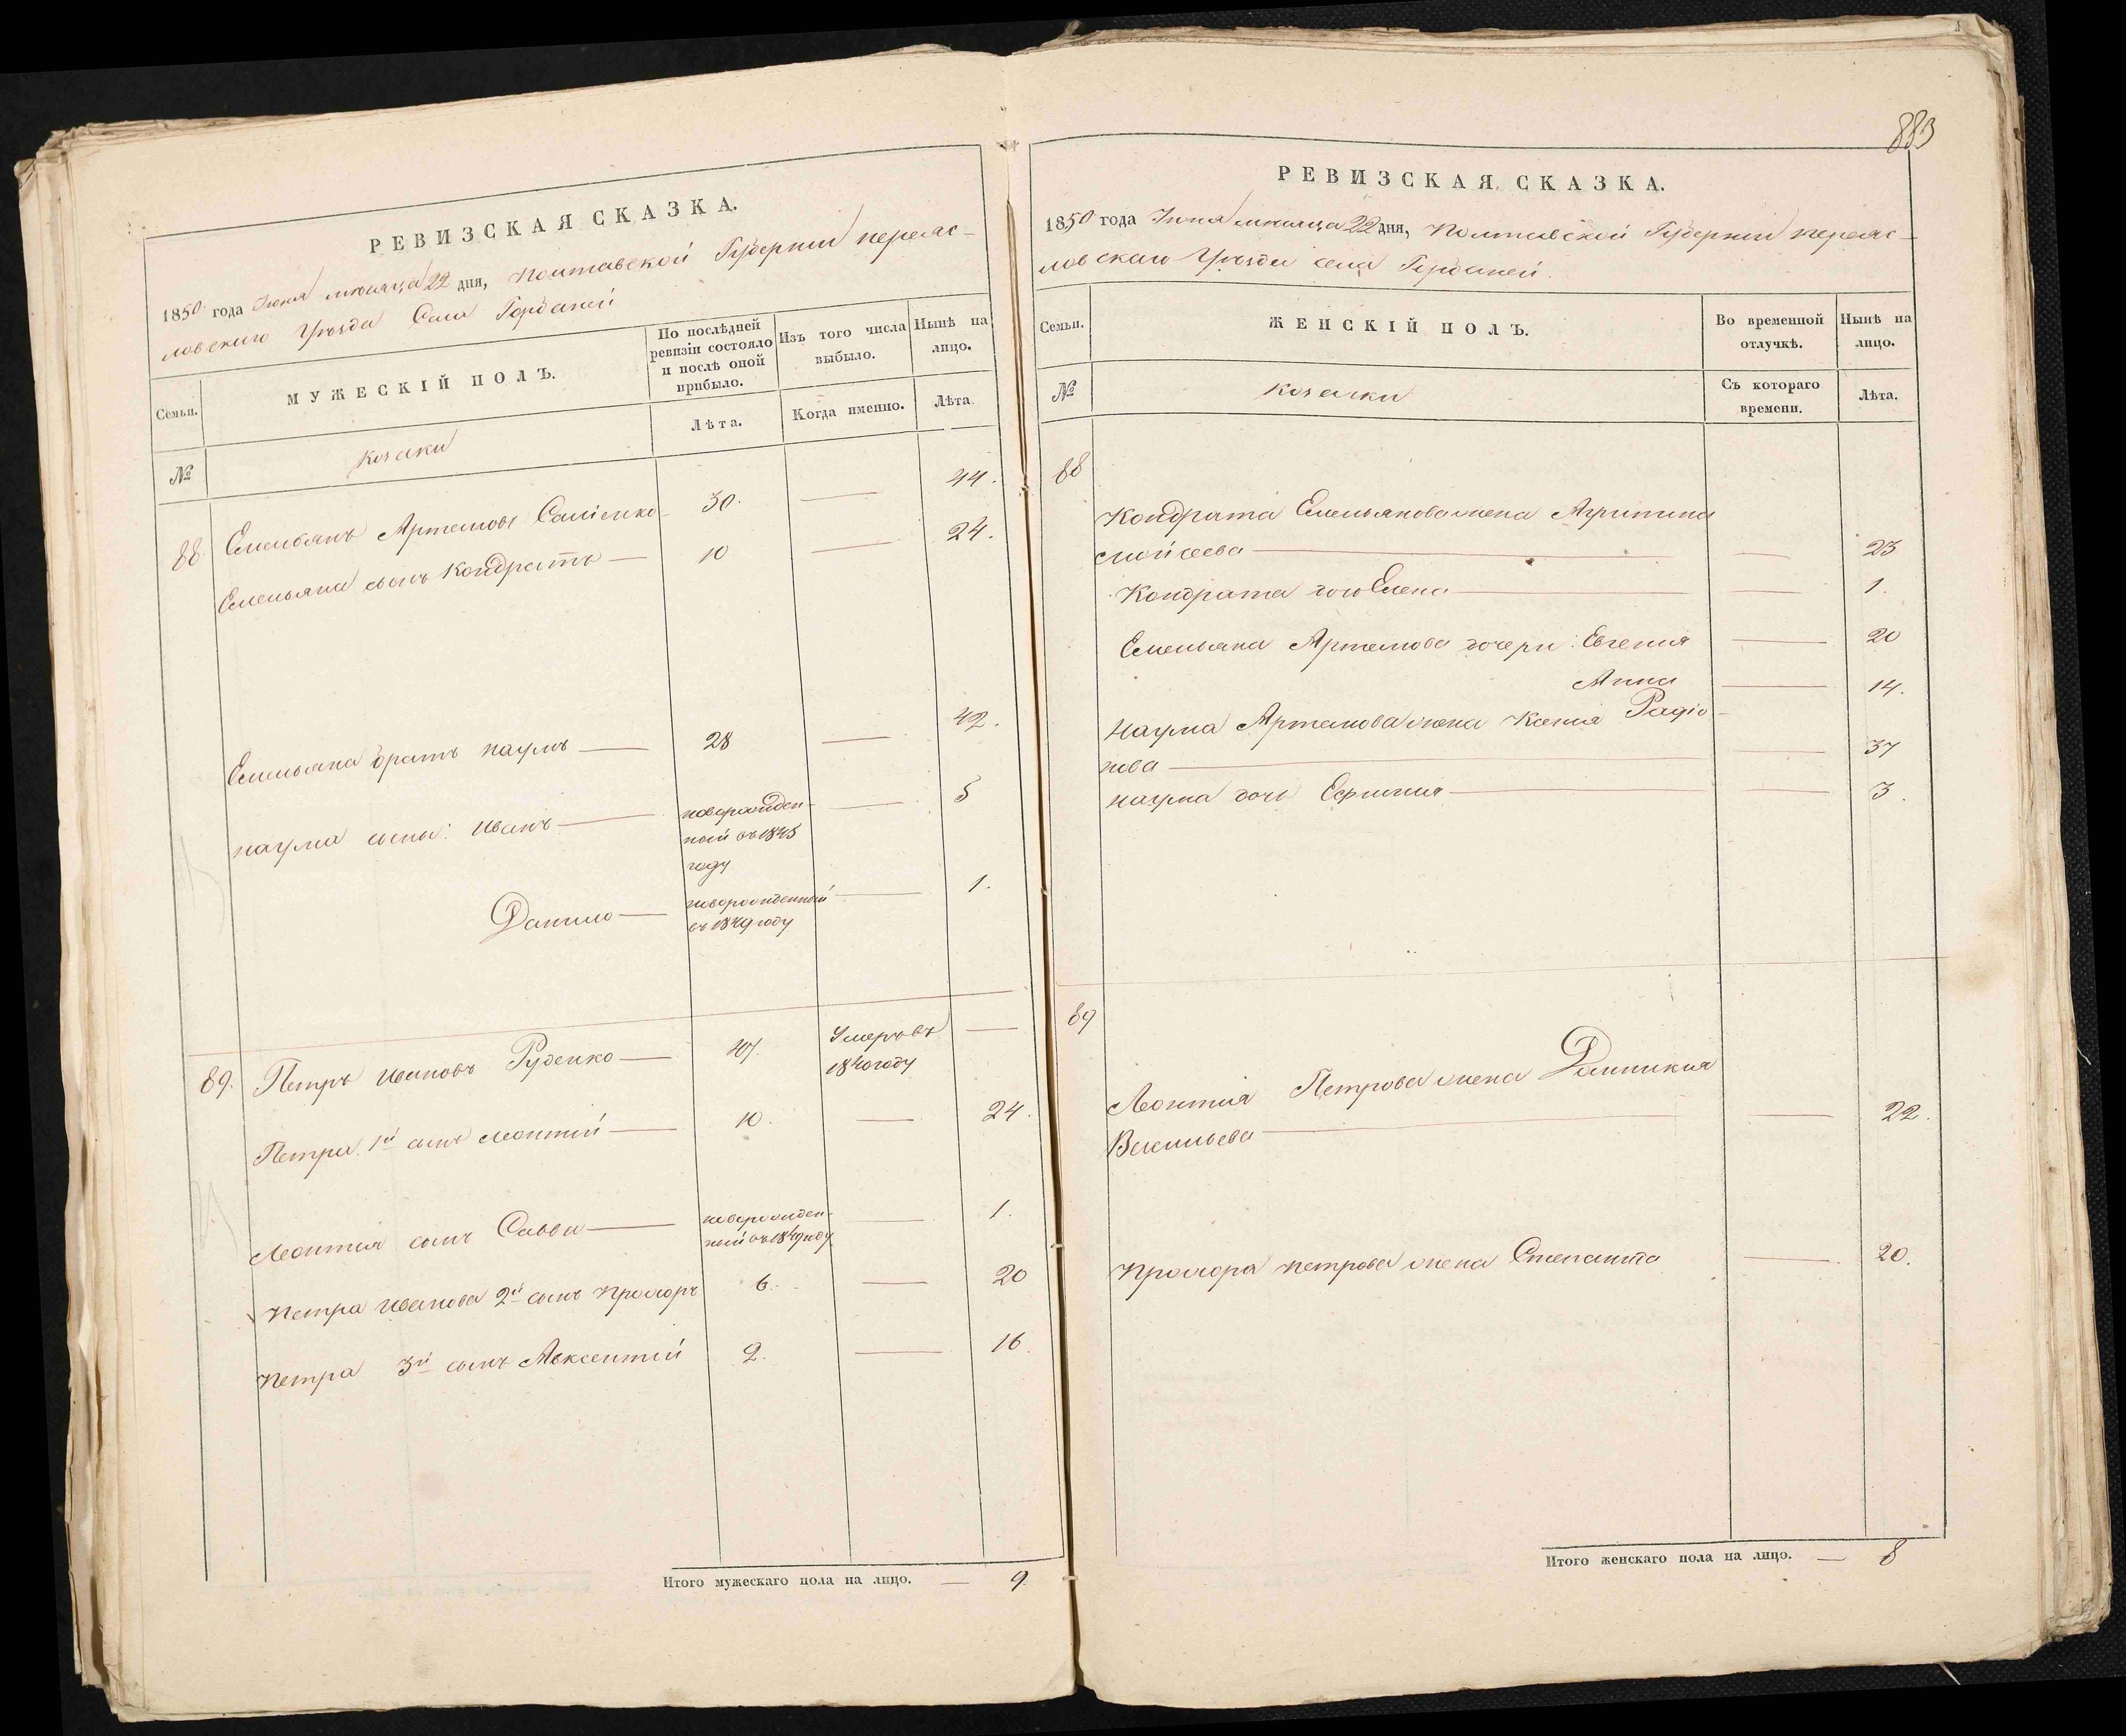 РЕВИЗСКАЯ СКАЗКА.
1850 года Іюня мѣсяца 22 дня, Полтавской Губерніи переяс-
лавскаго Уѣзда Села
Семьи.
МУЖЕСКІЙ ПОЛЪ.
По послѣдней
ревизіи состояло
и послѣ оной
прибыло.
Изъ того числа
выбыло.
Нынѣ на
лицо.
№
козаки
Лѣта.
Когда именно.
Лѣта.
88 Емельянъ Артемовъ 30. — 44.
Емельяна сынъ Кондратъ — 10 — 24.
Емельяна братъ наумъ — 28 — 42.
наума сыны: Иванъ — новорожден- — 5
ный въ 1845
году
Данило — новорожденный — 1.
въ 1849 году
89. Петръ Ивановъ Руденко — 40. Умеръ въ —
1840 году
Петра 1й сынъ Леонтій — 10. — 24.
Леонтія сынъ Савва — новорожден- — 1.
ный въ 1849 году
Петра Иванова 2й сынъ Прохоръ 6. — 20
Петра 3й сынъ Авксентій 2. — 16.
Итого мужескаго пола на лицо. — 9.
883
РЕВИЗСКАЯ СКАЗКА.
1850 года Іюня мѣсяца 22 дня, Полтавской Губерніи переяс-
лавскаго Уѣзда села
Семьи.
ЖЕНСКІЙ ПОЛЪ.
Во временной
отлучкѣ.
Нынѣ на
лицо.
№
козачки
Съ котораго
времени.
Лѣта.
88
Кондрата Емельянова жена Агрипина
Мойсеева — — 23
Кондрата дочь Елена — — 1.
Емельяна Артемова дочери: Евгенія — 20
Анна — 14.
Наума Артемова жена Ксенія Радіо-
нова — — 37
наума дочь Ефимія — — 3.
89
Леонтія Петрова жена Домникия
Васильева — — 22.
Прохора петрова жена Степанида — 20.
Итого женскаго пола на лицо. — 8